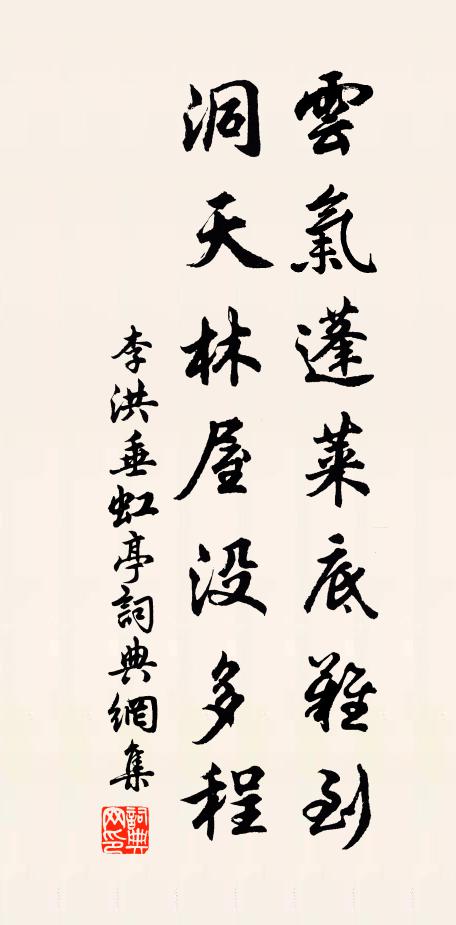 雲氣蓬萊底難到
洞天林屋沒多程
李洪垂虹亭詞典網集
詞典網印